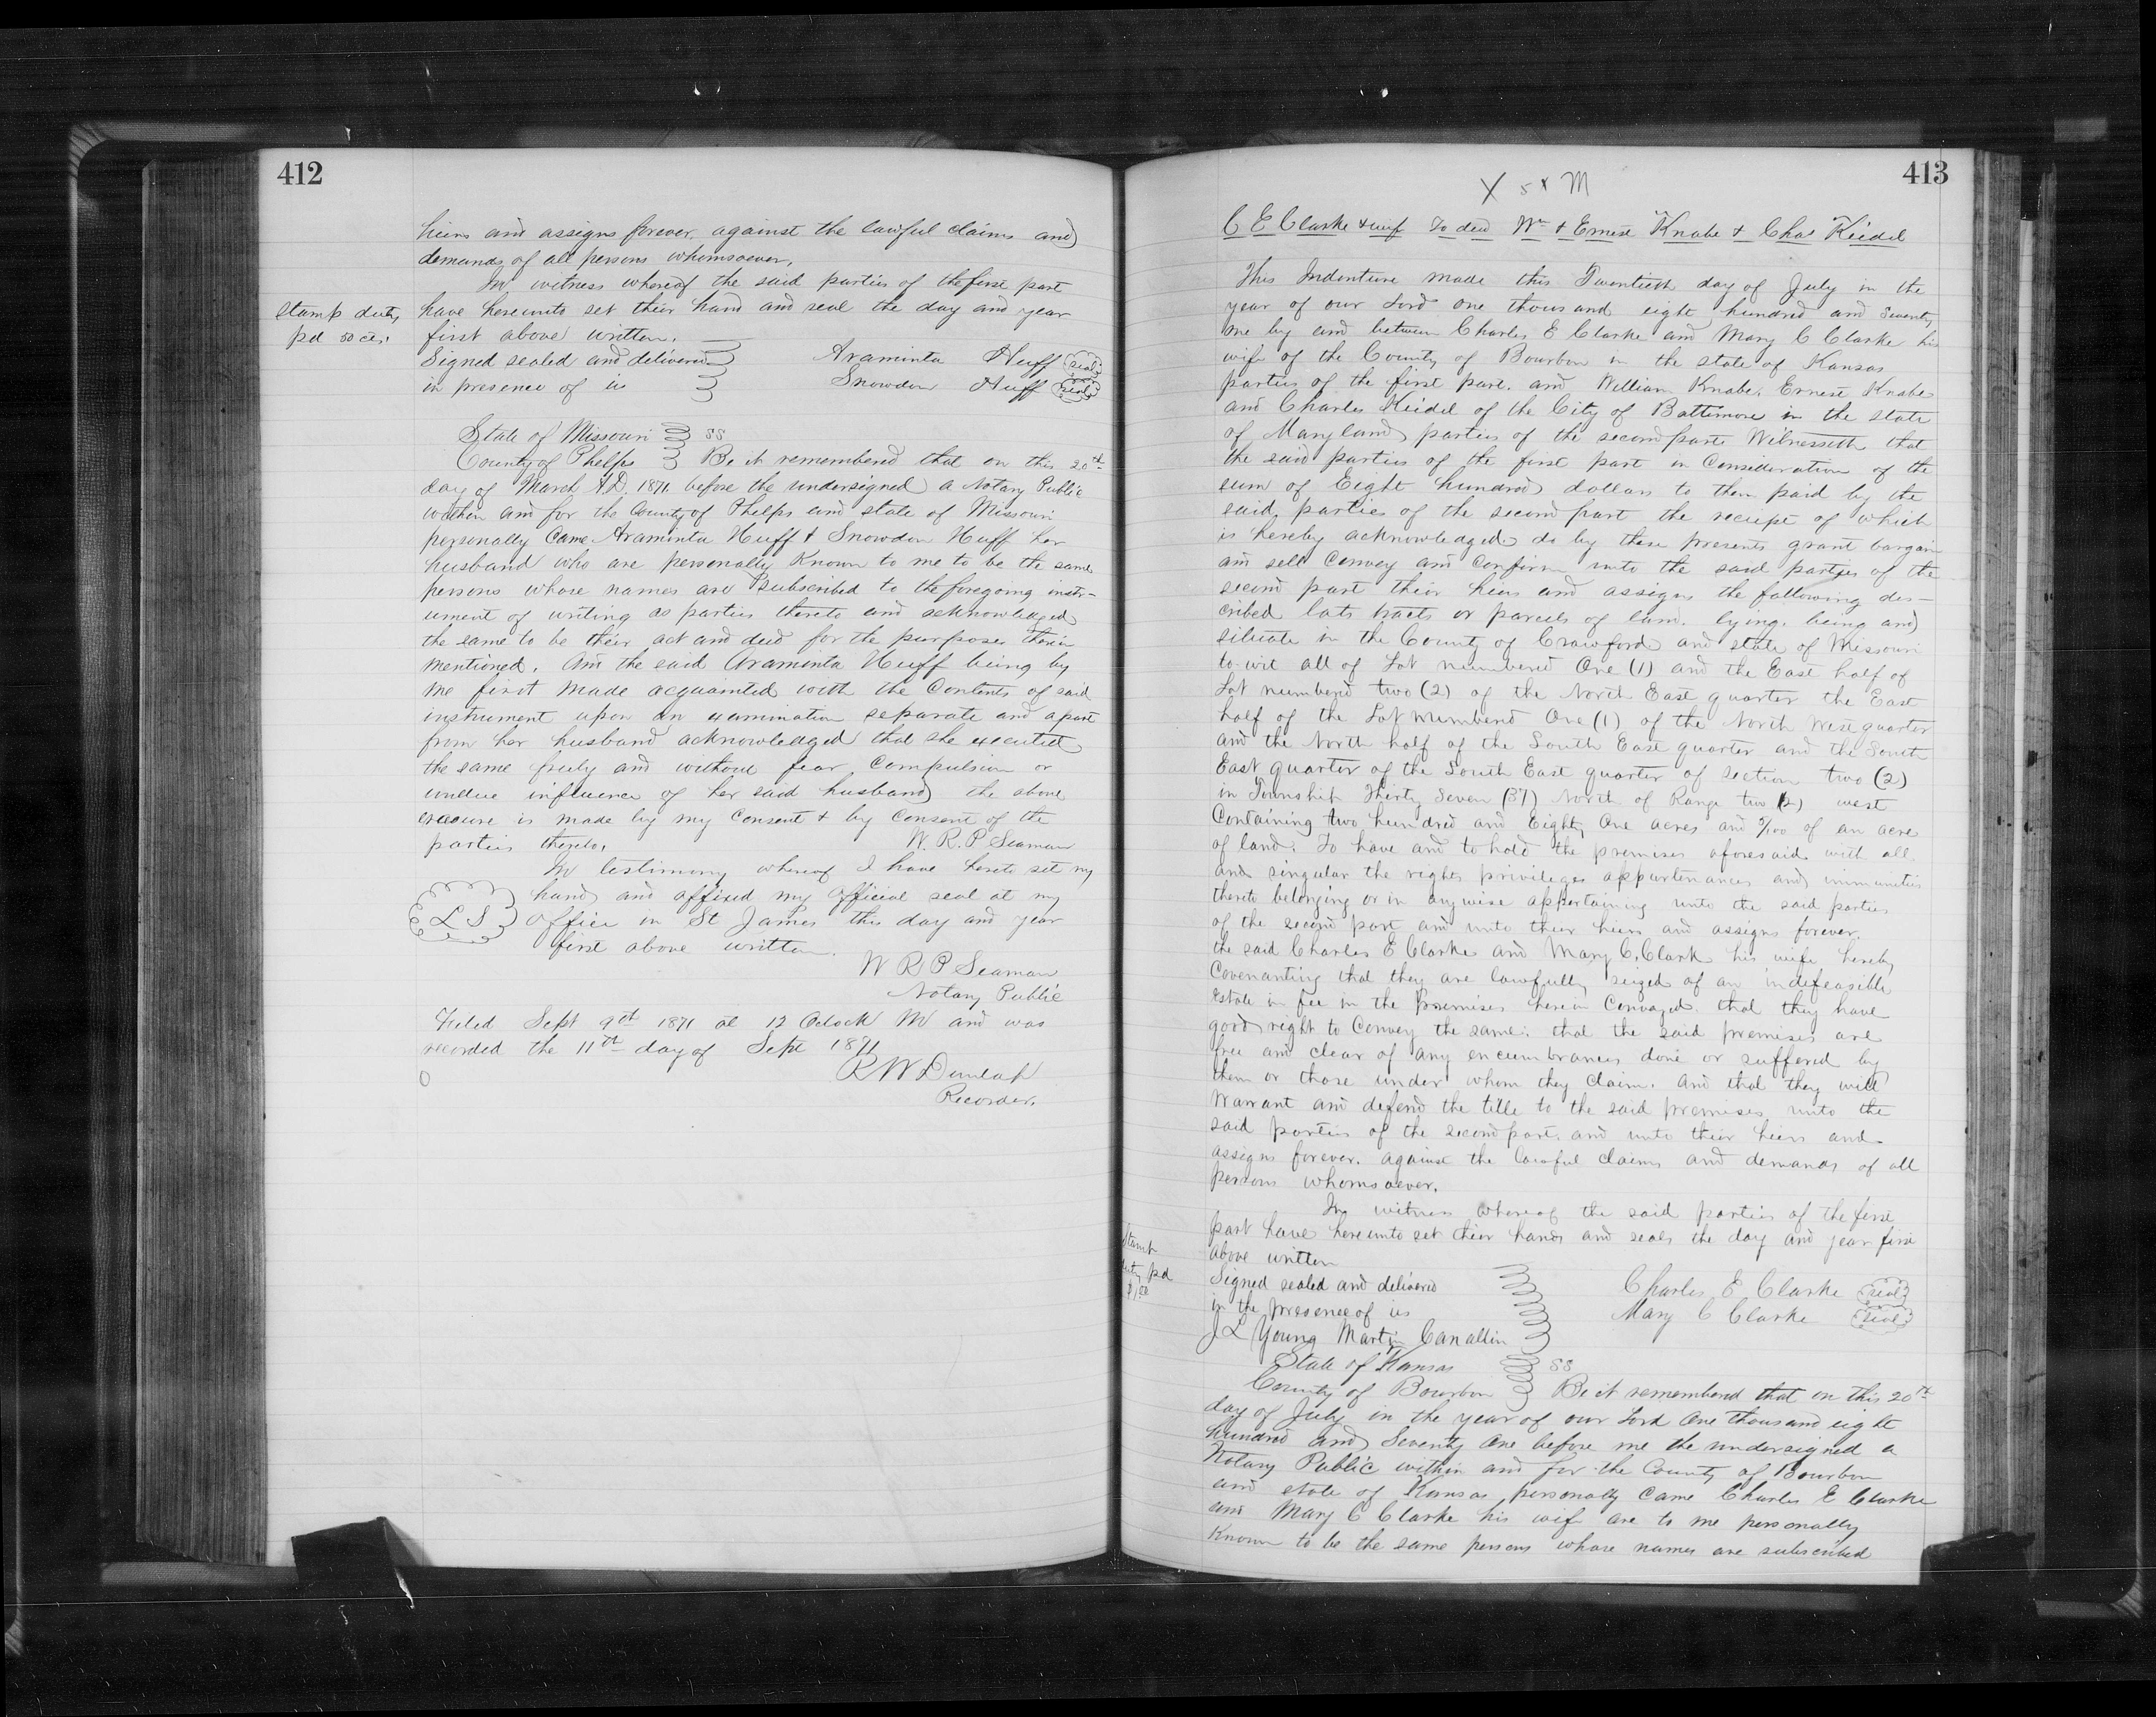 412
heirs and assigns forever. against the lawful claims and
demands of all persons whomsoever.
In witness whereof the said parties of the first part
stamp duty
pd 50 cts.
have hereunto set their hand and seal the day and year
first above written.
Signed sealed and delivered
in presence of us
Araminta Huff seal
Snowden Huff seal
State of Missouri ss
County of Phelps Be it remembered that on this 20th
day of March A.D. 1871 before the undersigned a Notary Public
within and for the County of Phelps and state of Missouri
personally Came Araminta Huff & Snowdon Huff her
husband who are personally Known to me to be the same
persons whose names are subscribed to the foregoing instr-
ument of writing as parties thereto and acknowledged
the same to be their act and deed for the purposes therein
mentioned. And the said Araminta Huff being by
me first made acquainted with the Contents of said
instrument upon an examination separate and apart
from her husband acknowledged that she executed
the same freely and without fear Compulsion or
undue influence of her said husband the above
erasure is made by my Consent & by Consent of the
parties thereto. W. R. P Seaman
In testimony whereof I have hereto set my
hand and affixed my official seal at my
L S office in St James this day and year
first above written.
W R P Seaman
Notary Public
Filed Sept 9th 1871 at 12 Oclock M and was
recorded the 11th day of Sept 1871
R W Dunlap
Recorder.
413
X 5 x M
C E Clarke & wife To deed Wm & Ernest Knabe & Chas Keidel
This Indenture made this Twentieth day of July in the
year of our Lord one thousand eight hundred and Seventy
one by and between Charles E Clarke and Mary C Clarke his
wife of the County of Bourbon in the state of Kansas
parties of the first part. and William Knabe, Ernest Knabe
and Charles Keidel of the City of Baltimore in the state
of Maryland parties of the second part. Witnesseth that
the said parties of the first part in Consideration of the
sum of Eight hundred dollars to them paid by the
said parties of the second part the receipt of which
is hereby acknowledged do by these presents grant bargain
and sell Convey and Confirm unto the said parties of the
second part their heirs and assigns the following des-
cribed lots tracts or parcels of land. lying. being and
situate in the County of Crawford and state of Missouri
to-wit all of Lot numbered One (1) and the East half of
Lot numberd two (2) of the North East quarter the East
half of the Lot numberd One (1) of the North West quarter
and the North half of the South East quarter and the South
East quarter of the South East quarter of section two (2)
in Township Thirty Seven (37) North of Range two (2) west
Containing two hundred and Eighty One acres and 5/100 of an acre
of land. To have and to hold the premises aforesaid with all
and singular the rights privileges appurtenances and immunities
thereto belonging or in anywise appertaining unto the said parties
of the second part and unto their heirs and assigns forever.
the said Charles E Clarke and Mary C. Clark his wife hereby
Covenanting that they are lawfully seized of an indefeasible
Estate in fee in the premises herein Conveyed. that they have
good right to Convey the same: that the said premises are
free and clear of any encumbrances done or suffered by
them or those under whom they claim. and that they will
Warrant and defend the title to the said premises unto the
said parties of the second part. and unto their heirs and
assigns forever. against the lawful claims and demands of all
persons whomsoever.
In witness whereof the said parties of the first
part have hereunto set their hands and seals the day and year first
above written
Stamp
duty pd
$1.00
Signed sealed and delivered
in the presence of us
J L Young Martin Canallin
Charles E Clarke seal
Mary C Clarke seal
State of Kansas ss
County of Bourbon Be it remembered that on this 20th
day of July in the year of our Lord One thousand eight
hundred and Seventy One before me the undersigned a
Notary Public within and for the County of Bourbon
and state of Kansas personally Came Charles E Clarke
and Mary C Clarke his wife are to me personally
Known to be the same persons whose names are subscribed